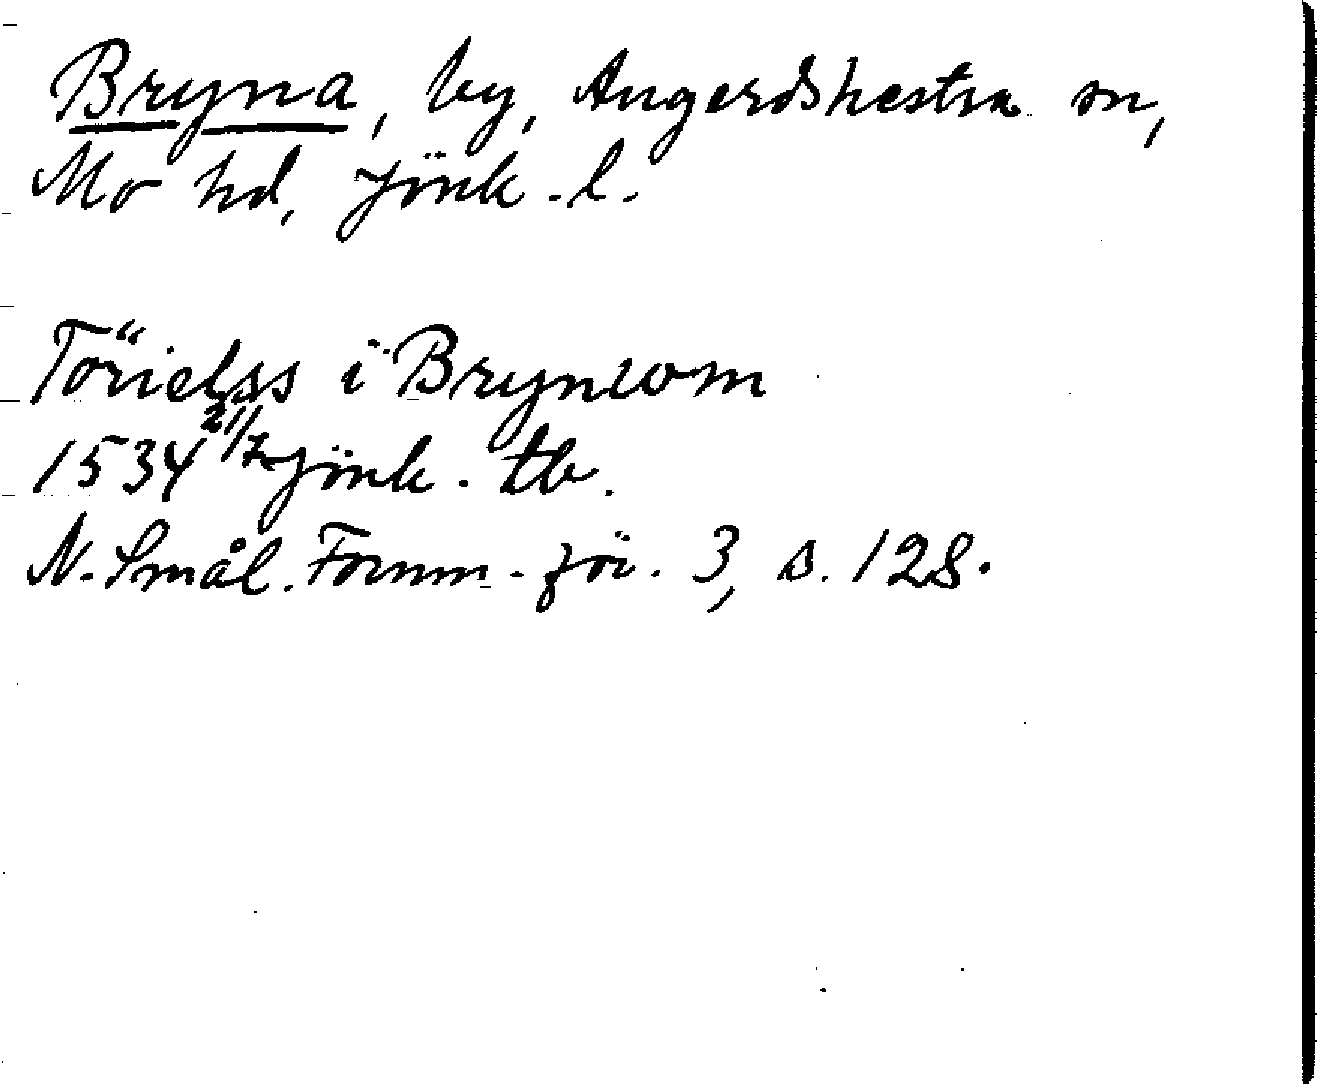 Bryna, by, Angerdshestra sn,
Mo hd, Jönk. l.
Törielss i Brynwm
1534 21/7 Jönk. tb.
N. Smål. Fornm. för. 3, s. 128.